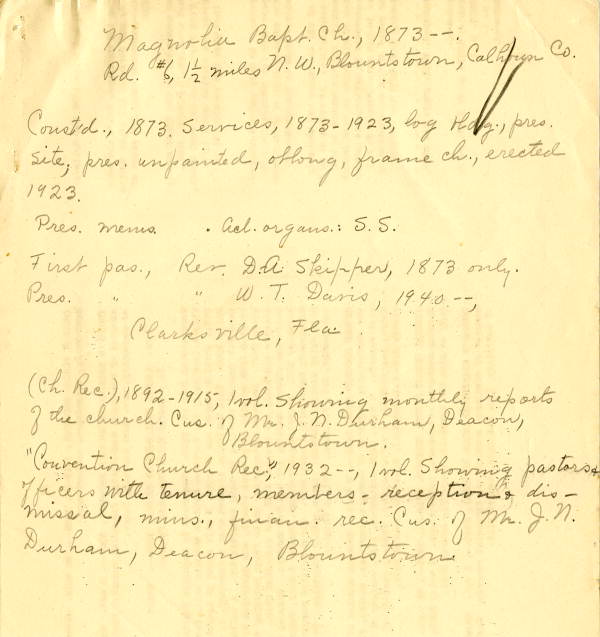 Magnolia Bapt. Ch., 1873--.
Rd. #6, 1½ miles N.W., Blountstown, Calhoun Co.
Const'd., 1873. Services, 1873-1923, log bldg., pres.
site; pres. unpainted, oblong, frame ch., erected
1923.
Pres. mems. . Act. organs.: S.S.
First pas., Rev. D.A. Skipper, 1873 only.
Pres. " " W. T. Davis, 1940--,
Clarksville, Fla.
(Ch. Rec.), 1892-1915, 1 vol. Showing monthly reports
of the church. Cus. of Mr. J. N. Durham, Deacon,
Blountstown.
"Convention Church Rec," 1932--, 1 vol. Showing pastors &
officers with tenure, members - reception & dis-
missal, mins., finan. rec. Cus. of Mr. J. N.
Durham, Deacon, Blountstown